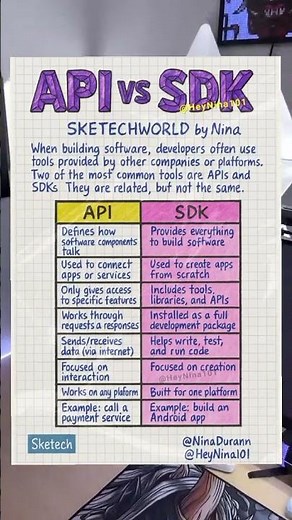 API vs SDK
@HeyNina101
SKETECHWORLD by Nina
When building software, developers often use
tools provided by other companies or platforms.
Two of the most common tools are APIs and
SDKs They are related, but not the same.
API SDK
Defines how software components talk
Provides everything to build software
Used to connect apps or services
Used to create apps from scratch
Only gives access to specific features
Includes tools, libraries, and APIs
Works through requests a responses
Installed as a full development package
Sends/receives data (via internet)
Helps write, test, and run code
Focused on interaction
Focused on creation
@HeyNina101
Works on any plaform
Built for one platform
Example: call a payment service
Example: build an Android app
Sketech
@NinaDurann
@HeyNina101